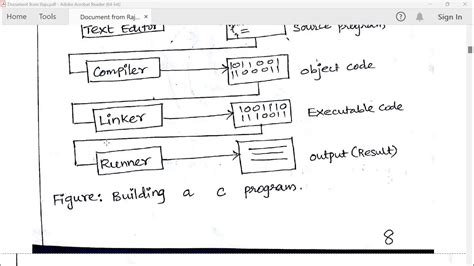 Document from Raju.pdf - Adobe Acrobat Reader (64-bit)
Home Tools Document from Raj... × Sign In
Text Editor Source program
Compiler 1011001 1100011 object code
Linker 1001110 1110011 Executable code
Runner output (Result)
Figure: Building a C program.
8